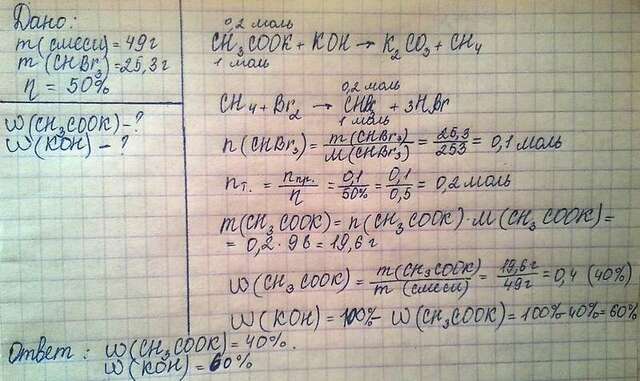 Дано:
m(смеси) = 49г
m(CHBr₃) = 25,3г
η = 50%
ω(CH₃COOK) - ?
ω(KOH) - ?
0,2 моль
CH₃COOK + KOH → K₂CO₃ + CH₄
1 моль
0,2 моль
CH₄ + Br₂ → + 3HBr
1 моль
n(CHBr₃) = m(CHBr₃)/M(CHBr₃) = 25,3/253 = 0,1 моль
nт. = nпр./η = 0,1/50% = 0,1/0,5 = 0,2 моль
m(CH₃COOK) = n(CH₃COOK) · M(CH₃COOK) =
= 0,2 · 98 = 19,6 г
ω(CH₃COOK) = m(CH₃COOK)/m(смеси) = 19,6г/49г = 0,4 (40%)
ω(KOH) = 100% - ω(CH₃COOK) = 100% - 40% = 60%
Ответ: ω(CH₃COOK) = 40%.
ω(KOH) = 60%